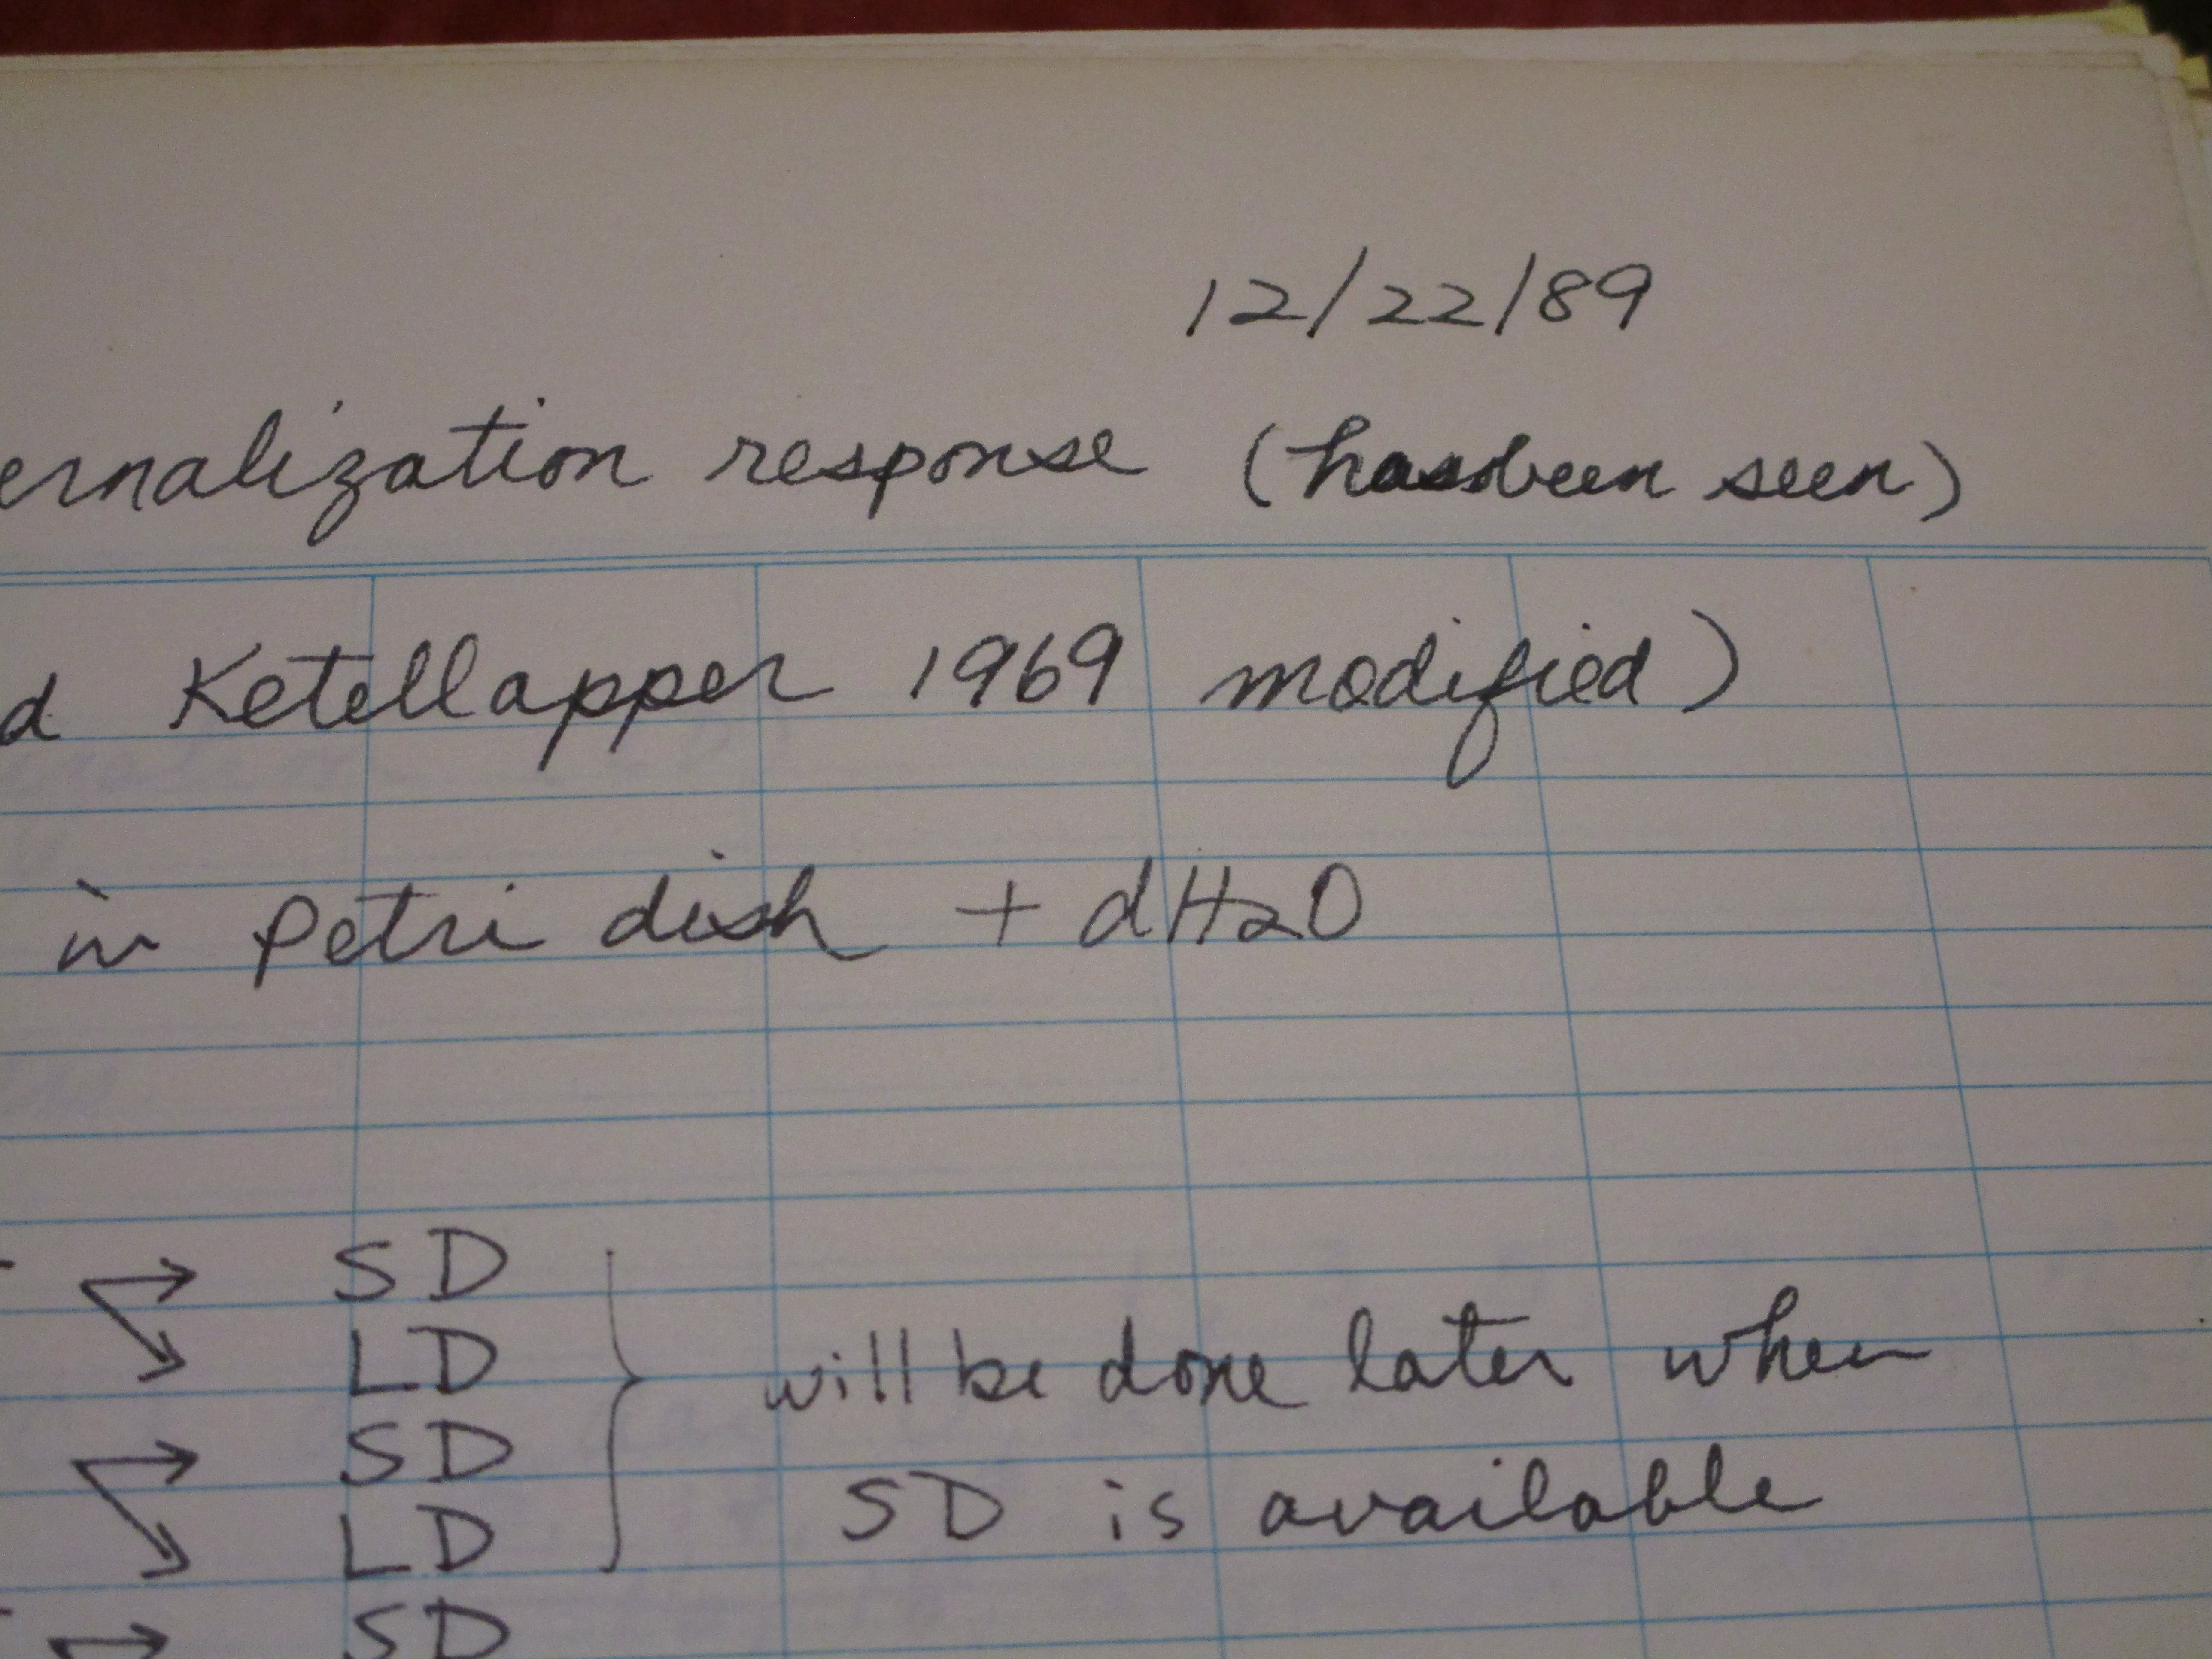 12/22/89
ernalization response (has been seen)
d Ketellapper 1969 modified)
in petri dish + dH2O
SD
LD
will be done later when
SD
SD is available
LD
SD